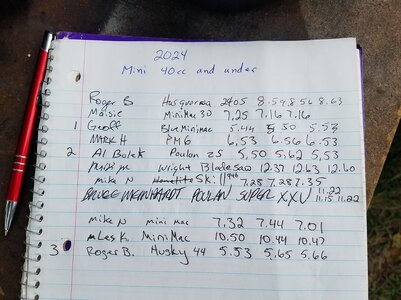 2024
Mini 40cc and under
Roger B. Husqvarna 2405 8.59 8.56 8.63
Maisie MiniMac 30 7.25 7.16 7.16
1 Geoff Blue Minimac 5.44 5.50 5.53
MARK H PM6 6.53 6.56 6.53
2 Al Boiek Poulan 25 5,50 5.62 5,53
Wright Blade saw 12.37 12.63 12.60
mike N Skil 7.28 7.28 7.35
BRUCE MEINHARDT POULAN SUPER XXV 11.22 11.15 11.22
mike N mini mac 7.32 7.44 7.01
Les K. MiniMac 10.50 10.44 10.47
3 Roger B. Husky 44 5.53 5.65 5.66